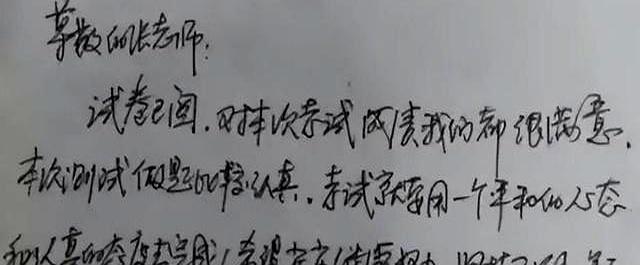 尊敬的张老师:
试卷已阅,对本次考试成绩我们都很满意,
本次测试做题比较认真。考试就要用一个平和的心态
和认真的态度去完成,希望